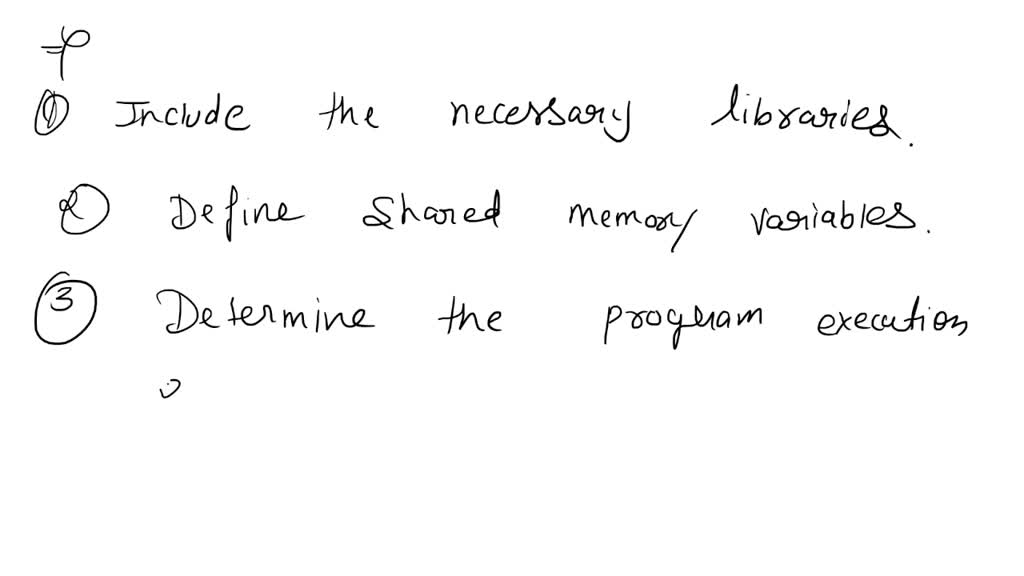 ① Include the necessary libraries.
② Define Shared memory variables.
③ Determine the program execution